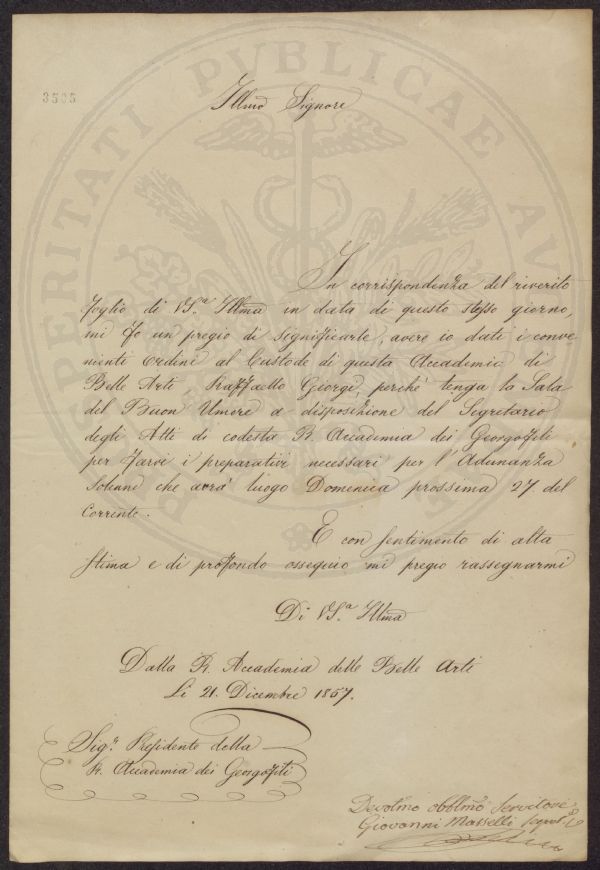 3505
Illmo Signore
In corrispondenza del riverito
foglio di VS.a Illma in data di questo stesso giorno,
mi fo un pregio di significarle, avere io dati i conve
nienti Ordini al Custode di questa Accademia di
Belle Arti Raffaello Giorgi, perchè tenga la Sala
del Buon Umore a disposizione del Segretario
degli Atti di codesta R. Accademia dei Georgofili
per farvi i preparativi necessari per l'Adunanza
Solenne che avrà luogo Domenica prossima 27 del
Corrente.
E con sentimento di alta
stima e di profondo ossequio mi pregio rassegnarmi
Di VS.a Illma
Dalla R. Accademia delle Belle Arti
Li 21. Dicembre 1857.
Sig.r Presidente della
R. Accademia dei Georgofili
Devotmo obblmo Servitore
Giovanni Masselli
PROSPERITATI PVBLICAE AV